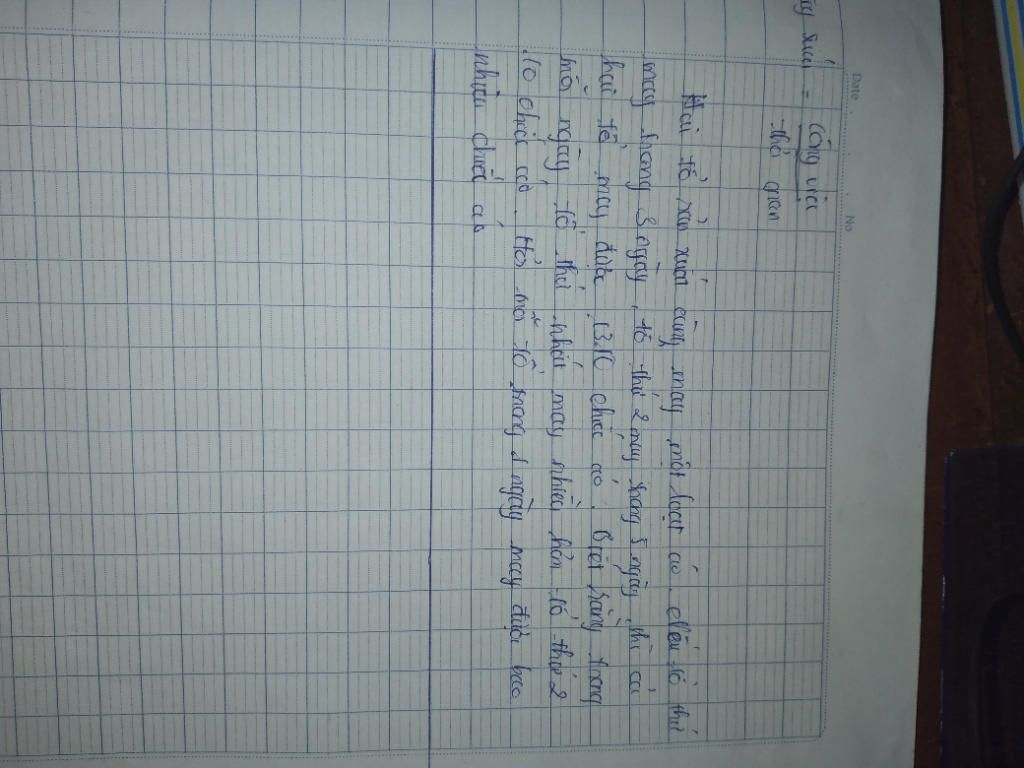 Date
No
suất = Công việc
thời gian
Hai tổ sản xuất cùng may một loại áo. Nếu tổ thứ
may trong 3 ngày, tổ thứ 2 may trong 5 ngày thì cả
hai tổ may được 1310 chiếc áo. Biết rằng trong
mỗi ngày tổ thứ nhất may nhiều hơn tổ thứ 2
10 chiếc áo. Hỏi mỗi tổ trong 1 ngày may được bao
nhiêu chiếc áo